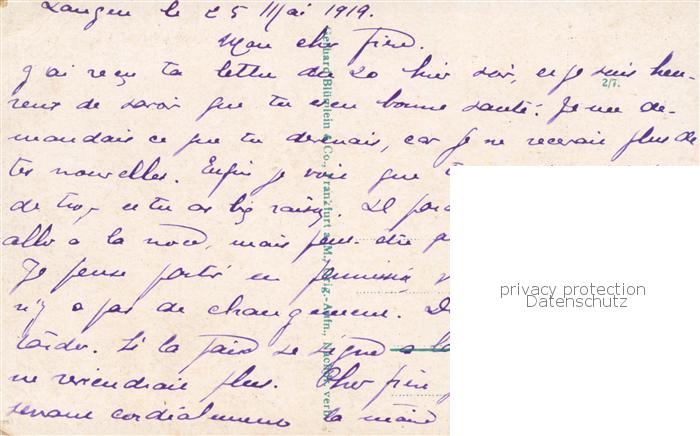 Langen le 25 Mai 1919.
Mon cher frère.
J'ai reçu ta lettre du 20 hier soir, et je suis heu-
reux de savoir que tu es en bonne santé. Je me de-
mandais ce que tu devenais, car je ne recevais plus de
tes nouvelles. Enfin je vois que
de trop et tu as big raison. Il
allé a la noce, mais peut-être
Je pense partir en permission
n'y a pas de changement.
tarder. Si la paix se signe a la
ne reviendrai plus. Cher frère
serrant cordialement la main
Gebhard Blümlein & Co., Frankfurt a. M., Orig.-Aufn., Nachdr. verb.
2/7.
privacy protection
Datenschutz